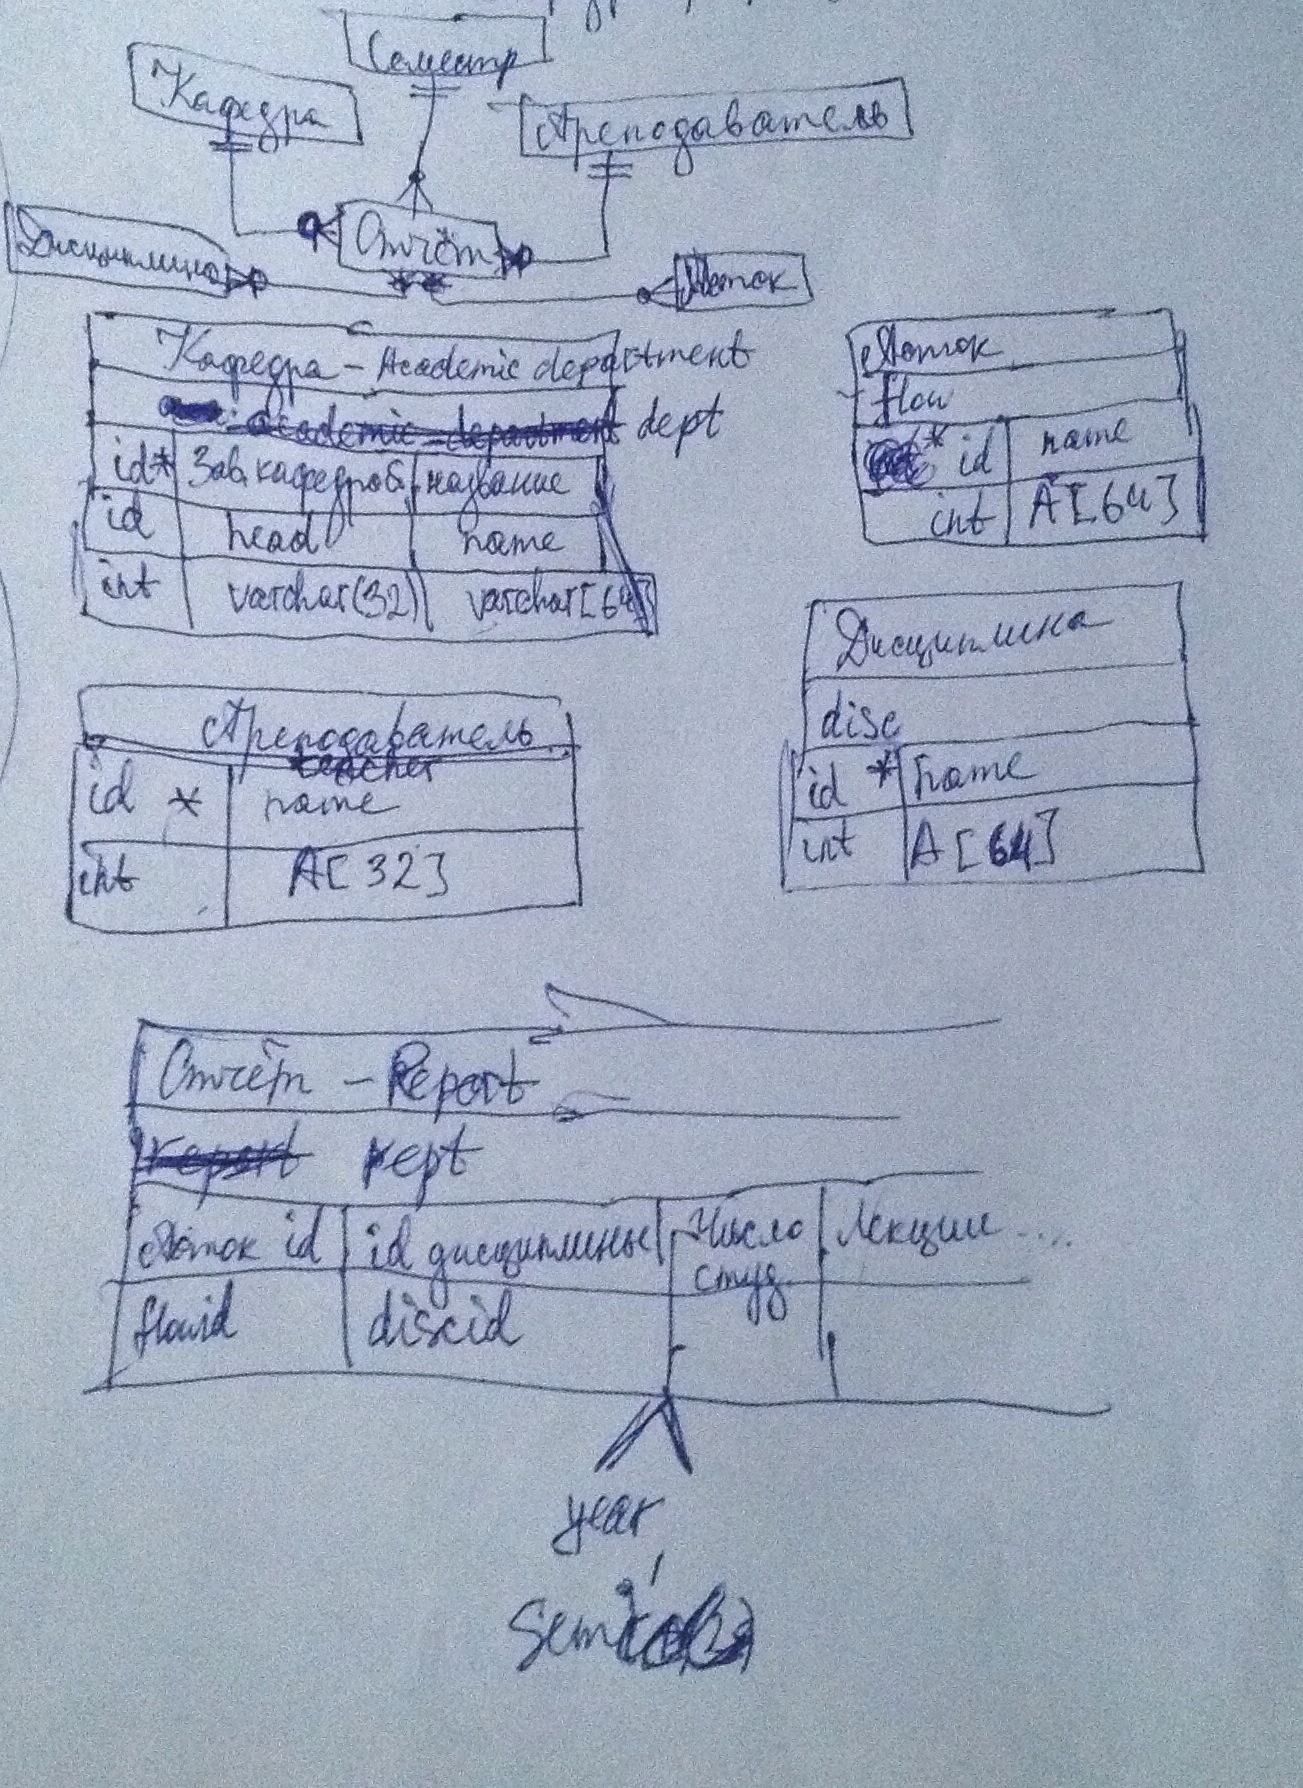 Семестр
Кафедра
Преподаватель
Отчёт
Дисциплина
Поток
Кафедра - Academic department
academic-department dept
id* Зав. кафедрой название
id head name
int varchar(32) varchar[64]
Поток
flow
* id name
int A[64]
Дисциплина
disc
id * name
int A[64]
Преподаватель
teacher
id * name
int A[32]
Отчёт - Report
report rept
Поток id id дисциплины Число студ. Лекции ....
flowid discid
year,
sem